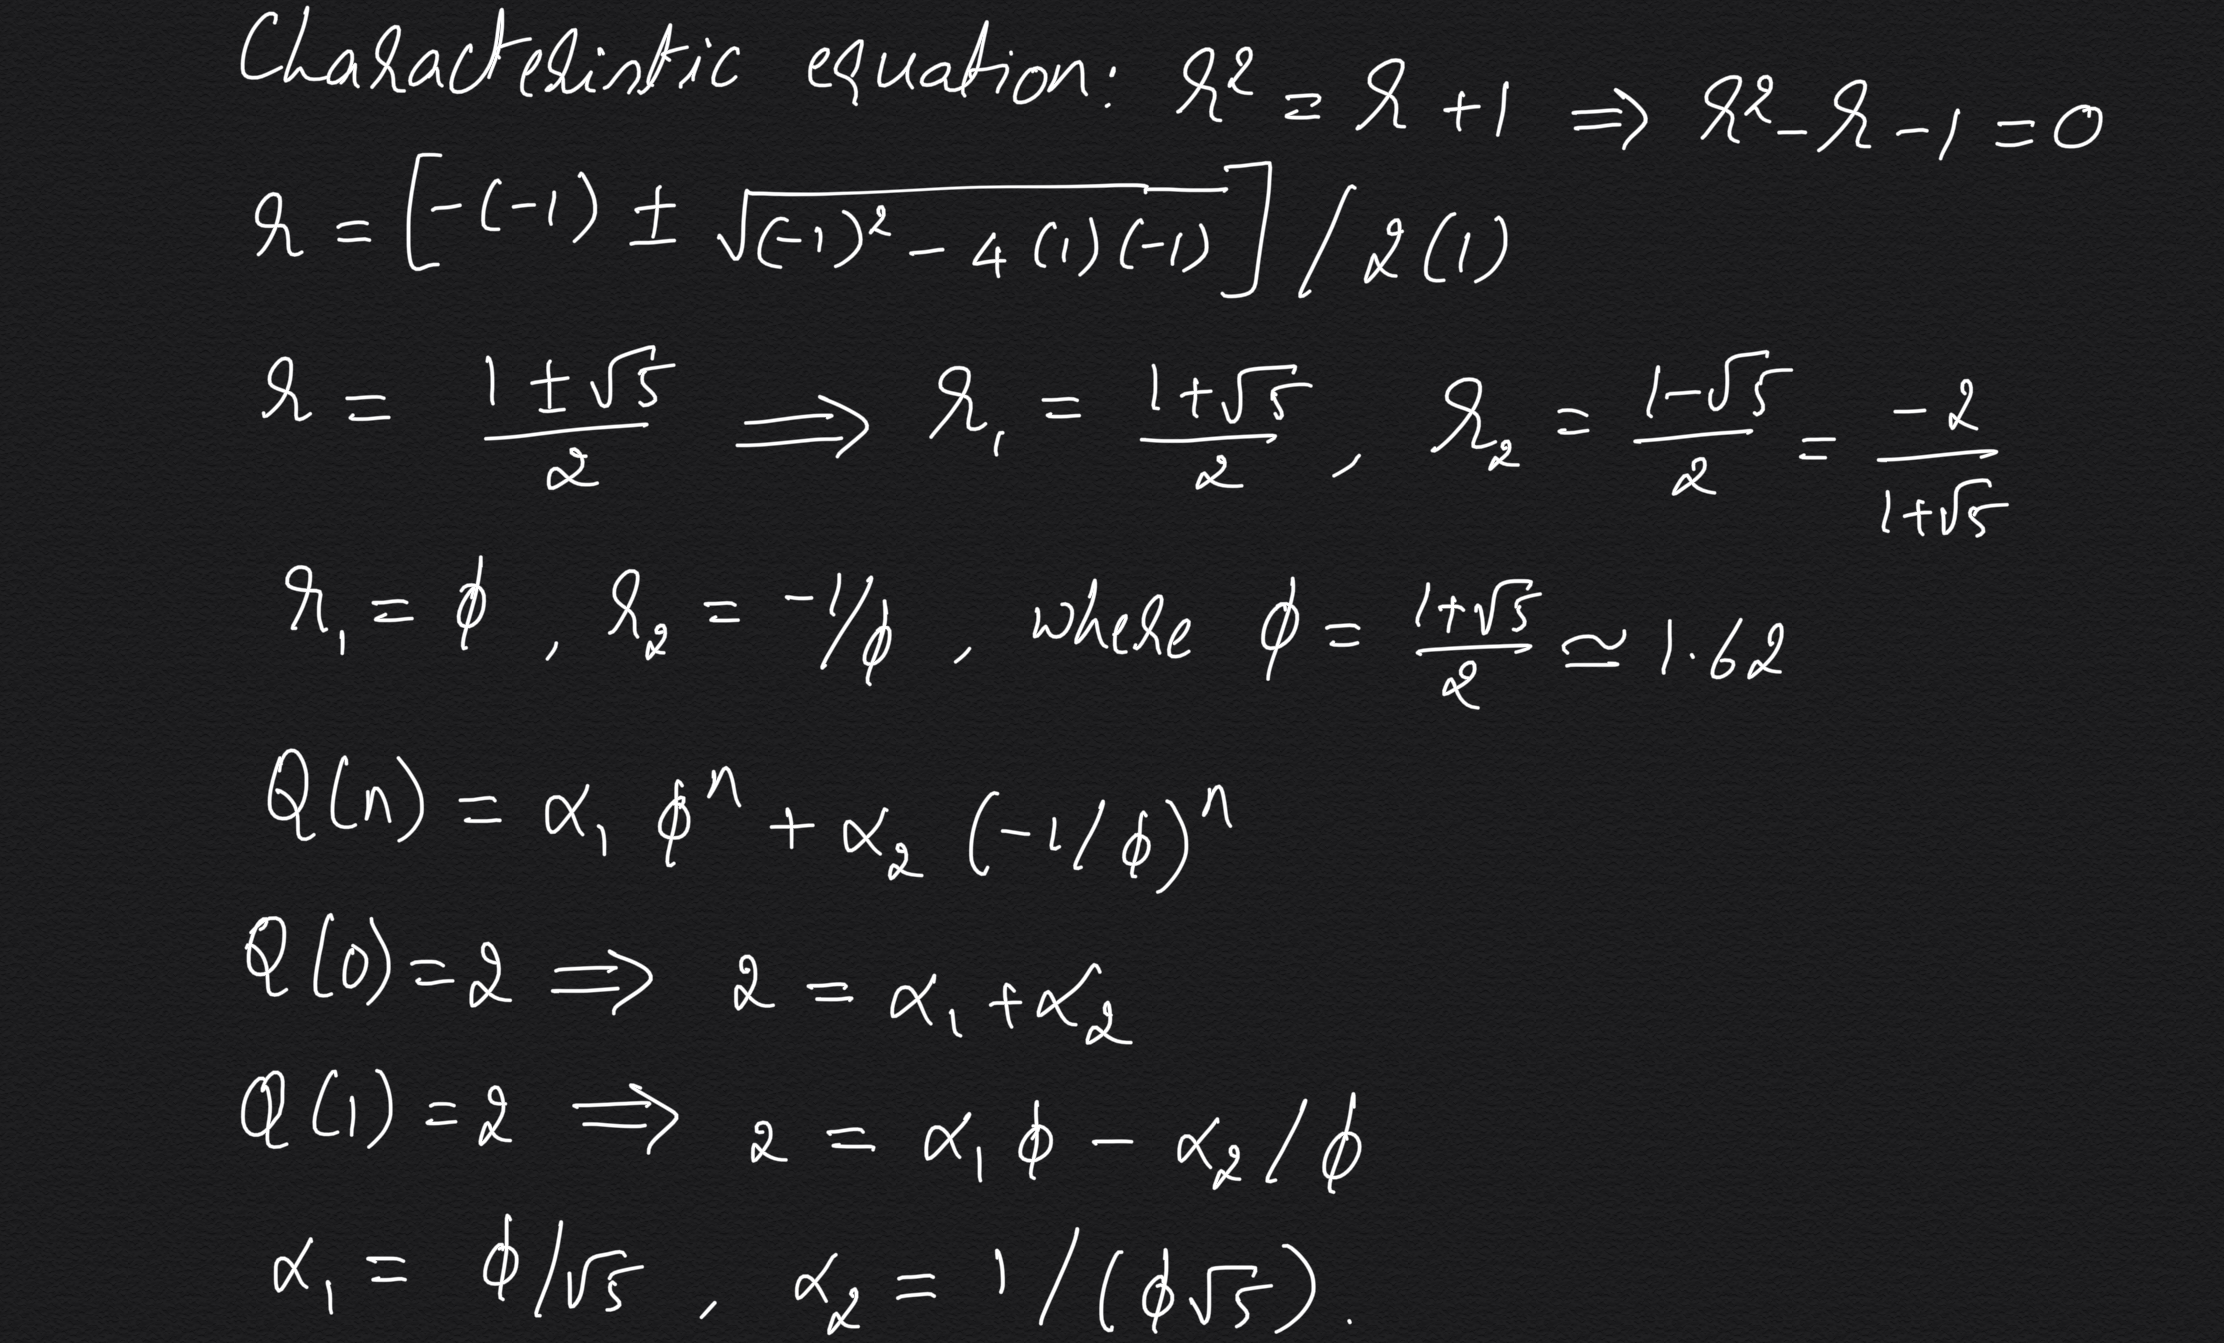 Characteristic equation: r² = r + 1 ⇒ r² - r - 1 = 0
r = [-(-1) ± √((-1)² - 4(1)(-1))] / 2(1)
r = (1 ± √5)/2 ⟹ r₁ = (1+√5)/2 , r₂ = (1-√5)/2 = -2/(1+√5)
r₁ = ϕ , r₂ = -1/ϕ , where ϕ = (1+√5)/2 ≃ 1.62
Q(n) = α₁ ϕⁿ + α₂ (-1/ϕ)ⁿ
Q(0) = 2 ⟹ 2 = α₁ + α₂
Q(1) = 2 ⟹ 2 = α₁ ϕ - α₂/ϕ
α₁ = ϕ/√5 , α₂ = 1/(ϕ√5).